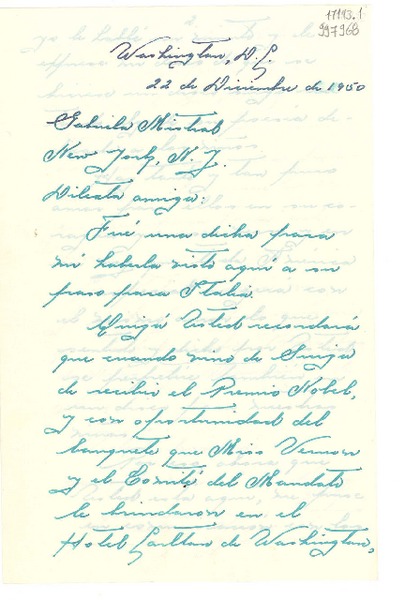 17193.1
997968
Washington, D.C.
22 de Diciembre de 1950
Gabriela Mistral
New York, N.Y.
Dilecta amiga:
Fué una dicha para
mí haberla visto aquí a su
paso para Italia.
Quiza Usted recordará
que cuando vino de Suiza
de recibir el Premio Nobel,
y con oportunidad del
banquete que Miss Vernon
y el Comité del Mandate
le brindaron en el
Hotel Carlton de Washington,